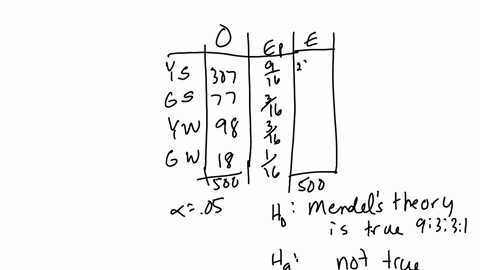 O Ep E
YS 307 9/16 2
GS 77 3/16
YW 98 3/16
GW 18 1/16
500 500
α=.05
H₀: Mendel's theory
is true 9:3:3:1
Hₐ: not true